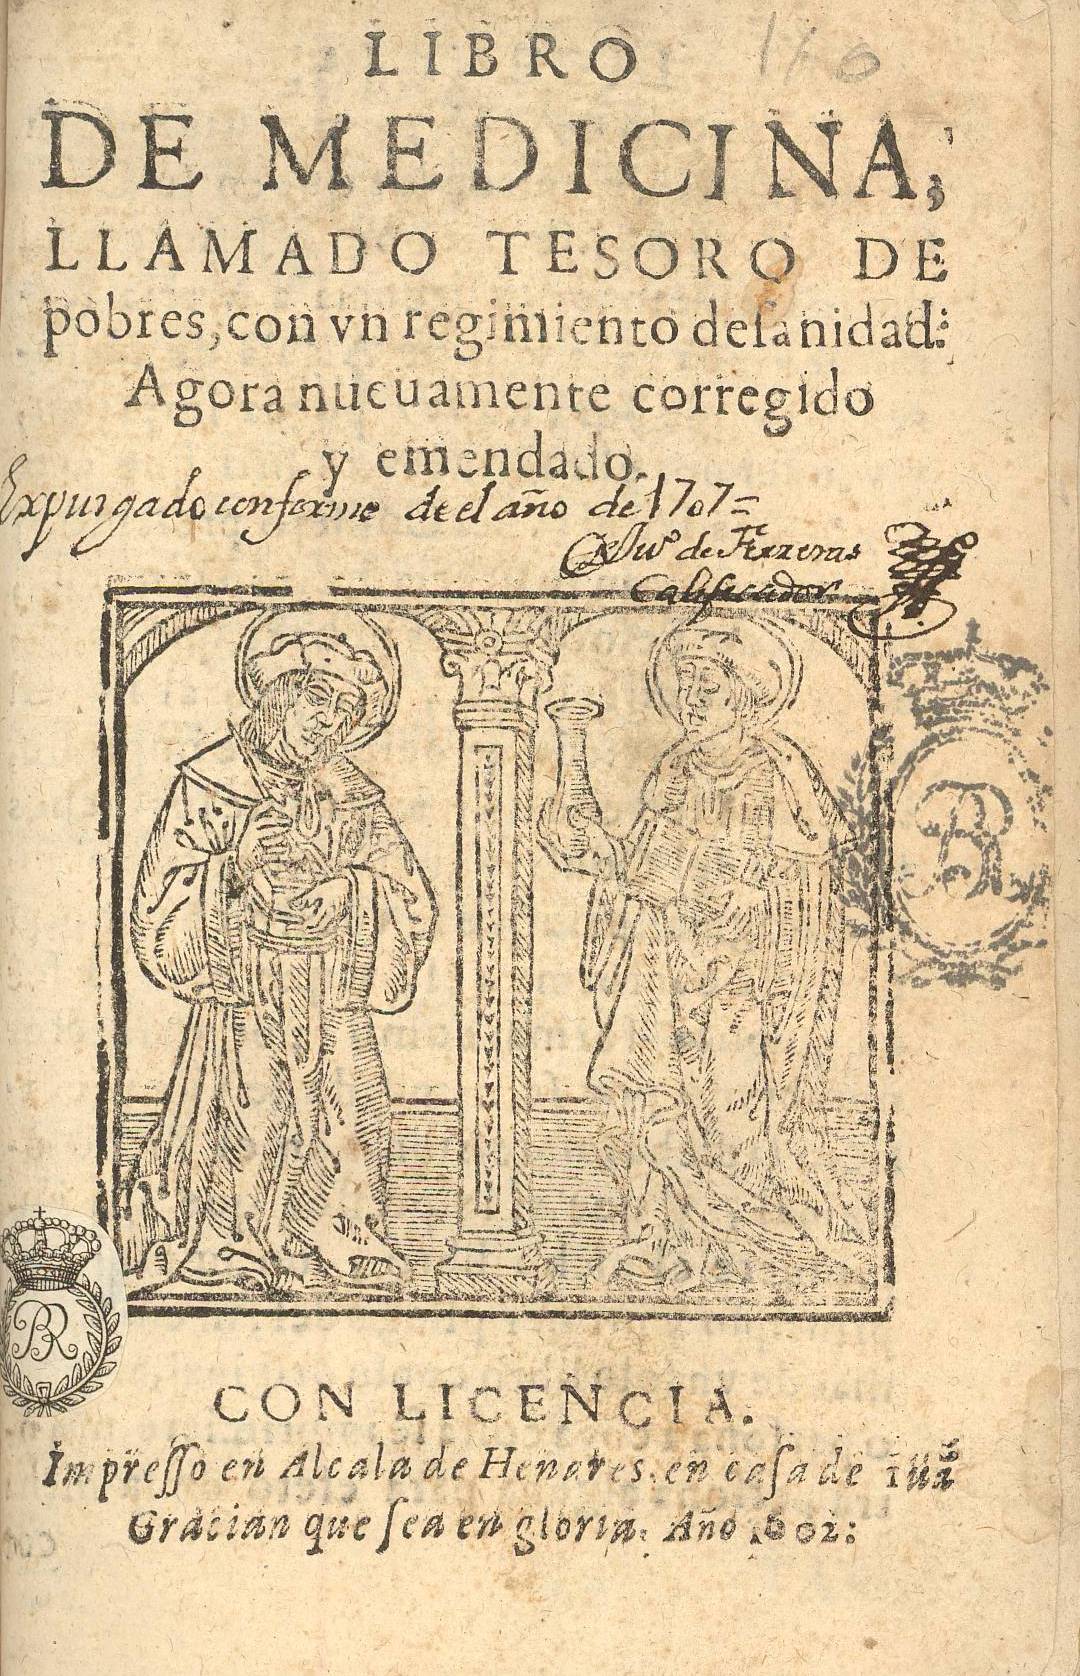 LIBRO
140
DE MEDICINA,
LLAMADO TESORO DE
pobres, con vn regimiento de sanidad:
Agora nueuamente corregido
y emendado.
Expurgado conforme de el año de 1707=
de Ferreras
Calificador
BR
BR
CON LICENCIA.
Impreſſo en Alcala de Henares, en caſa de Iuã
Gracian que ſea en gloria. Año .602: